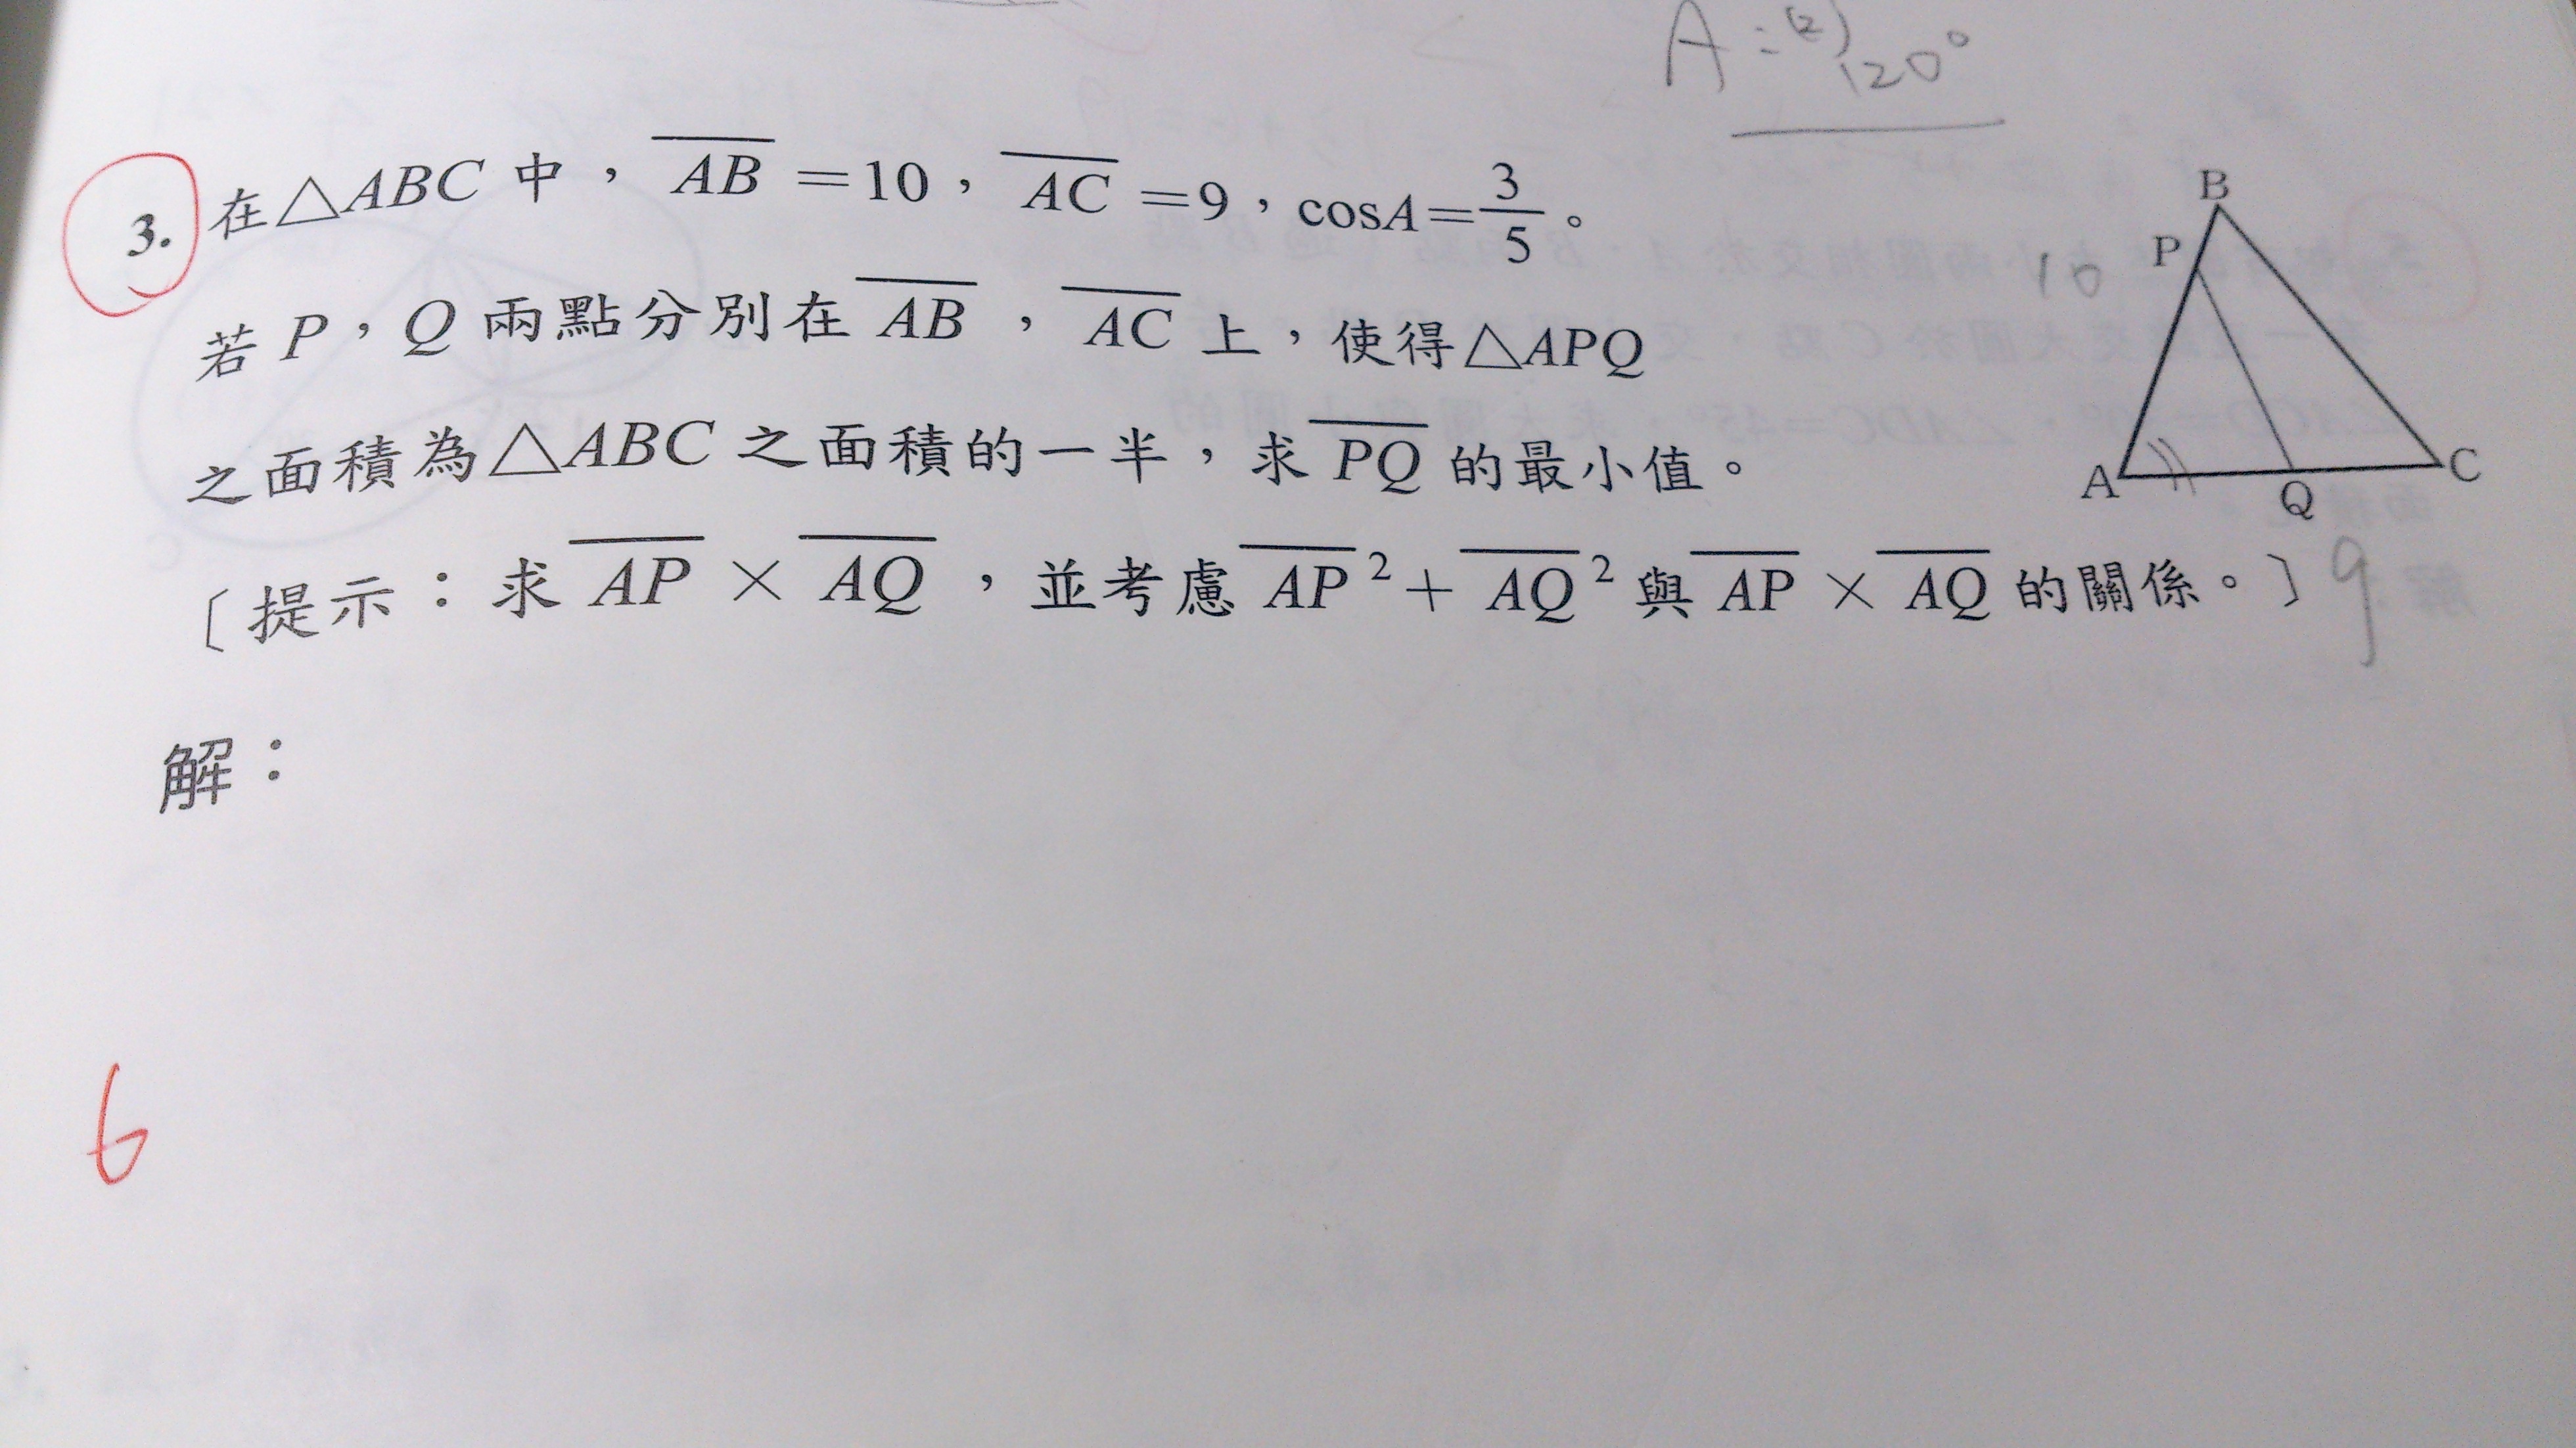 A:(2) 120°
3. 在△ABC 中，AB=10，AC=9，cosA=3/5。
若 P，Q 兩點分別在 AB，AC 上，使得△APQ
之面積為△ABC 之面積的一半，求 PQ 的最小值。
〔提示：求 AP × AQ，並考慮 AP²+AQ² 與 AP × AQ 的關係。〕
B
P
10
A
Q
C
9
解：
6